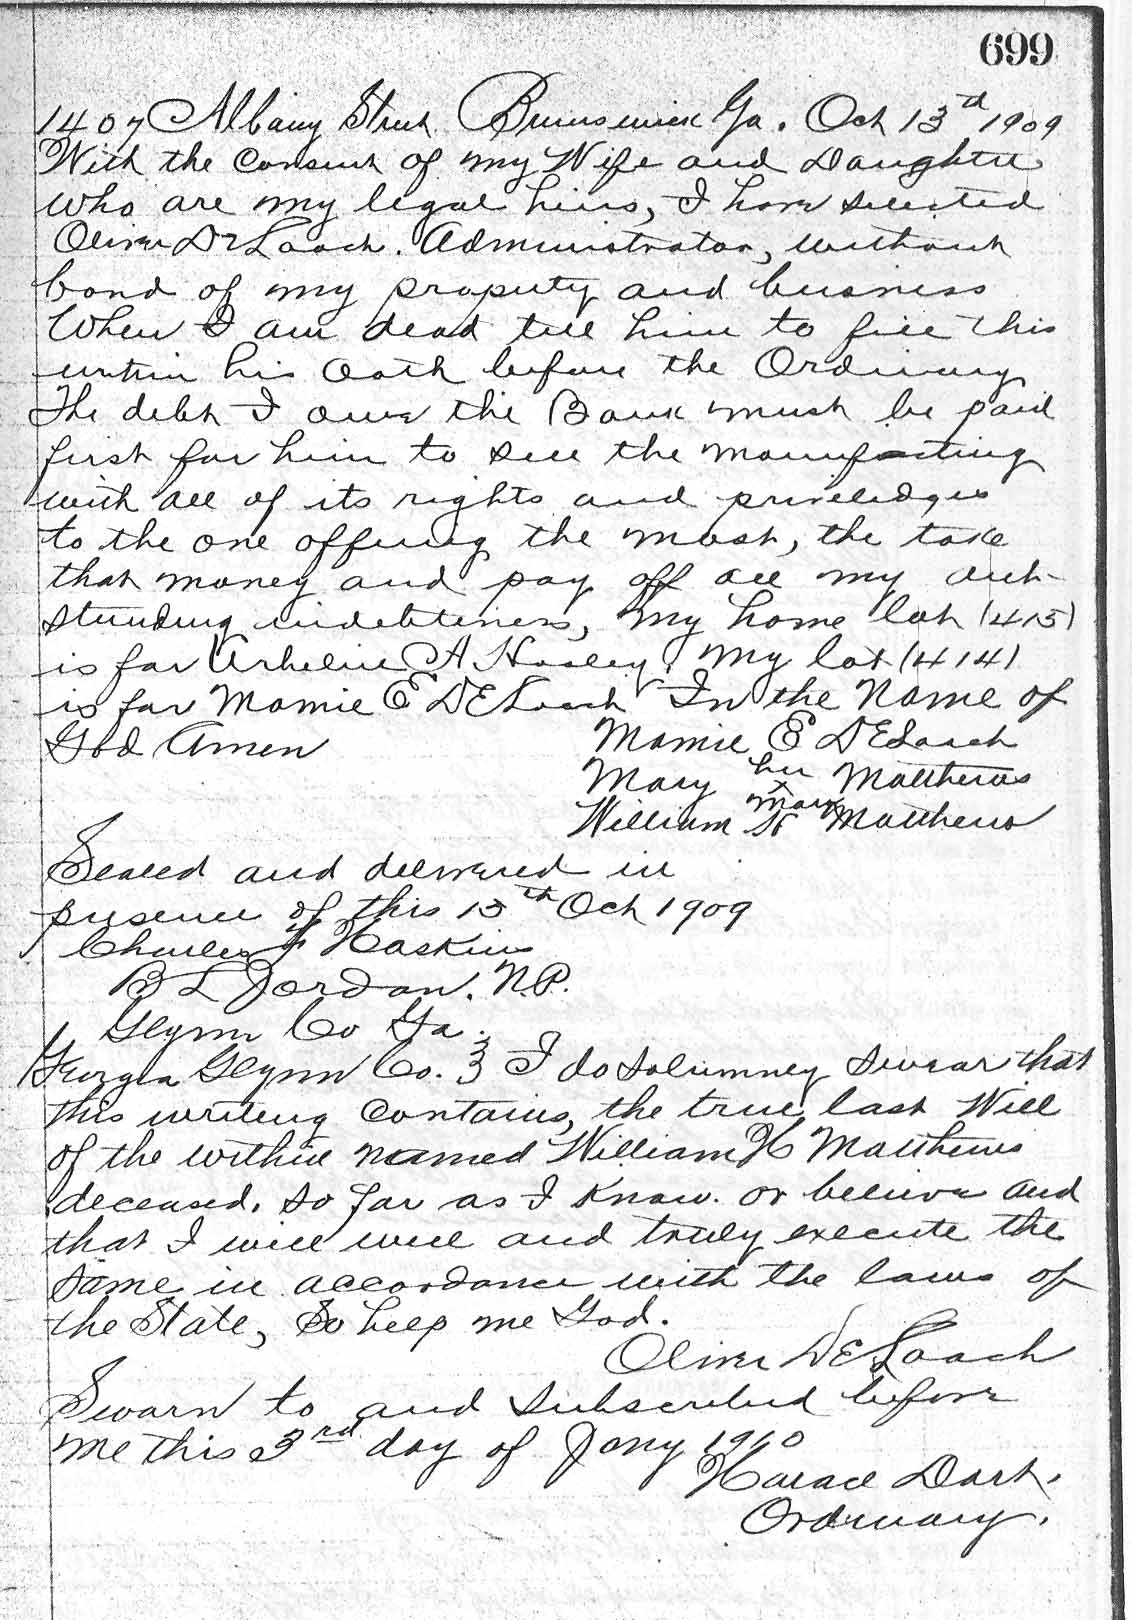 699
1407 Albany Street Brunswick Ga. Oct 13th 1909
With the consent of my Wife and Daughter
who are my legal heirs, I have selected
Oliver DeLoach. Administrator, without
bond of my property and business
When I am dead tell him to file this
within his oath before the Ordinary
The debt I owe the Bank must be paid
first for him to sell the manufacting
with all of its rights and priveledges
to the one offering the most, the take
that money and pay off all my out-
standing indebtiness, My home lot (415)
is for A Hosley. My lot (414)
is for Mamie E DELoach In the Name of
God Amen
Mamie E DELoach
Mary her x mark Matthews
William H Matthews
Sealed and delivered in
presence of this 13th Oct 1909
Charles F Haskins
B L Jordan. N.P.
Glynn Co Ga.
Georgia Glynn Co. } I do solumney swear that
this writing contains, the true last Will
of the within named William H Matthews
deceased. so far as I know. or believe and
that I will well and truly execute the
same in accordance with the laws of
the State, So help me God.
Oliver DELoach
Sworn to and subscribed before
me this 3rd day of Jany 1910
Horace Dart.
Ordinary.